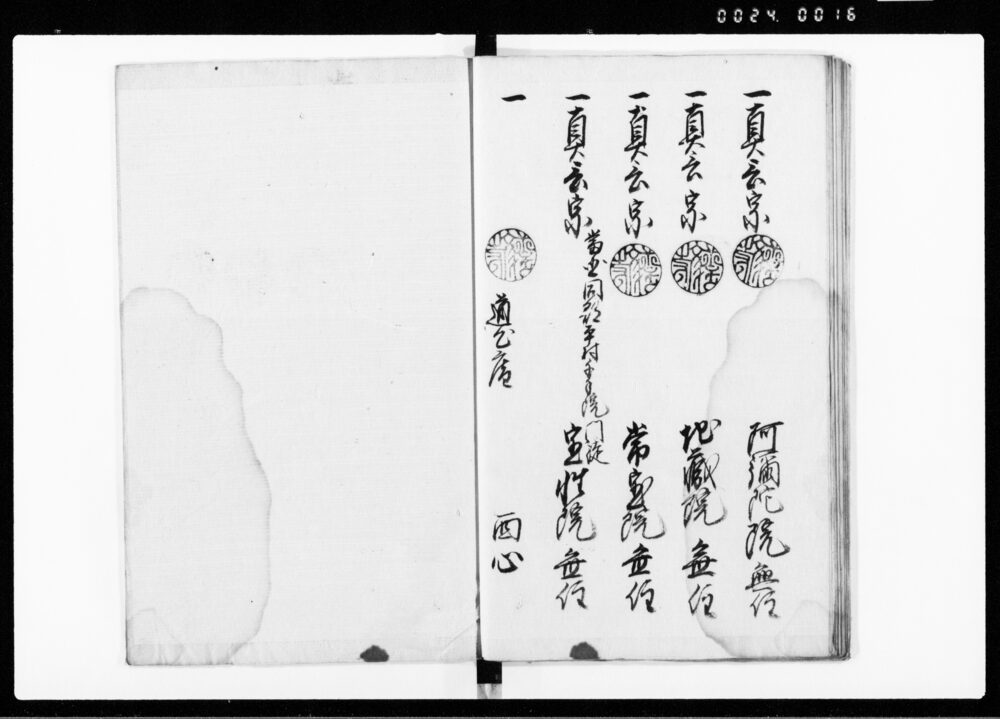 0024 0016
一真言宗 阿彌陀院 無住
一真言宗 地蔵院 無住
一真言宗 常宝院 無住
一真言宗 同郡 村 院門徒 宝性院 無住
一 道心庵 西心